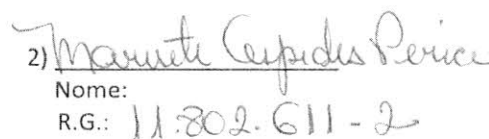 2) Marinete Cespedes Perice
Nome:
R.G.: 11.802.611-2